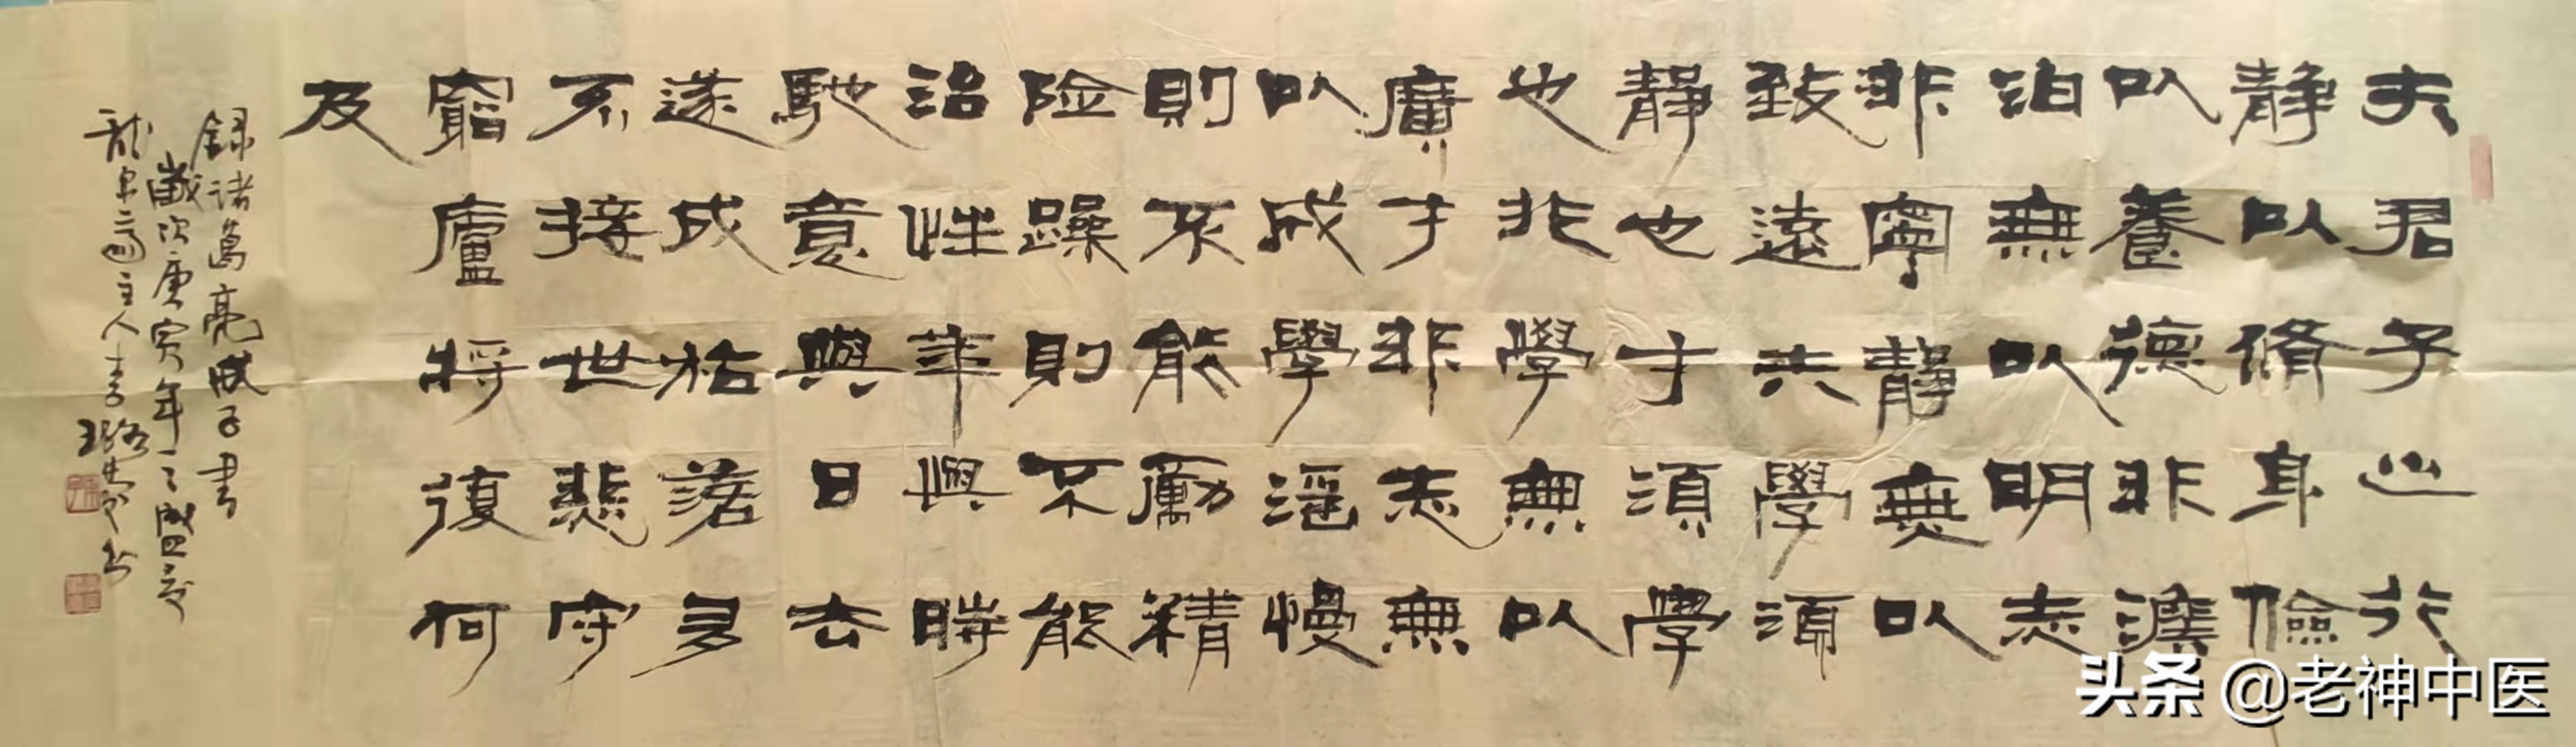 夫君子之行
静以脩身儉
以養德非澹
泊無以明志
非寧静無以
致遠夫學須
静也才須學
也非學無以
廣才非志無
以成學滛慢
則不能勵精
险躁則不能
治性年與時
馳意與日去
遂成枯落多
不接世悲守
窮廬將復何
及
録诸葛亮诫子書
歲次庚寅年之盛夏
主人李璐
头条 @老神中医